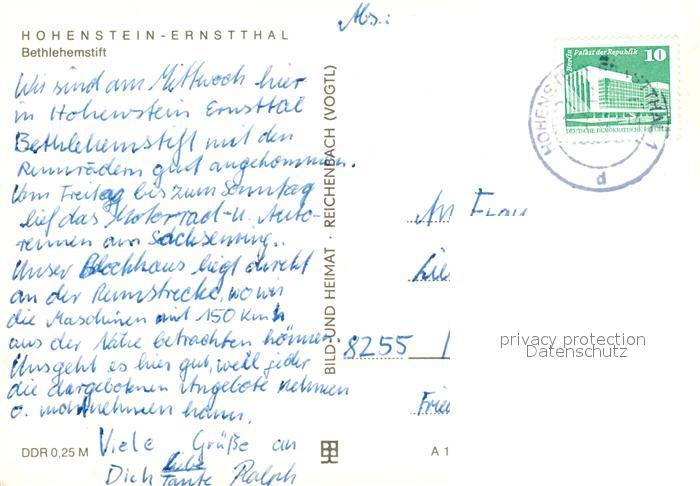 HOHENSTEIN-ERNSTTHAL
Bethlehemstift
Wir sind am Mittwoch hier
in Hohenstein Ernsttal
Bethlehemstift mit den
Rennrädern gut angekommen.
Vom Freitag bis zum Sonntag
lief das Motorrad- u. Auto-
rennen am Sachsenring..
Unser Blockhaus liegt direkt
an der Rennstrecke, wo wir
die Maschinen mit 150 km/h
aus der Nähe betrachten können.
Uns geht es hier gut, weil jeder
die dargebotenen Angebote nehmen
o. nehmen kann.
Viele Grüße an
Dich liebe Tante Ralph
DDR 0,25 M
BILD UND HEIMAT · REICHENBACH (VOGTL)
A 1
Abs.:
Berlin Palast der Republik 10
DEUTSCHE DEMOKRATISCHE REPUBLIK
An Frau
8255
privacy protection
Datenschutz